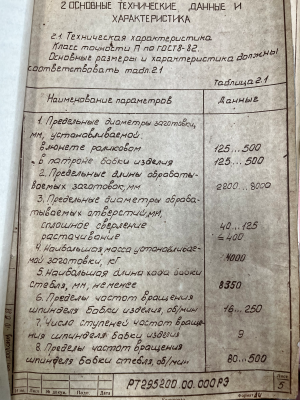 2 ОСНОВНЫЕ ТЕХНИЧЕСКИЕ ДАННЫЕ И
ХАРАКТЕРИСТИКА
2.1. Техническая характеристика
Класс точности П по ГОСТ 8-82.
Основные размеры и характеристика должны
соответствовать табл. 2.1
Таблица 2.1
Наименование параметров Данные
1. Предельные диаметры заготовки,
мм, устанавливаемой
в люнете роликовом 125...500
в патроне бабки изделия 125...500
2. Предельные длины обрабаты-
ваемых заготовок, мм 2800...8000
3. Предельные диаметры обраба-
тываемых отверстий, мм,
сплошное сверление 40...125
растачивание ≤400
4. Наибольшая масса устанавливае-
мой заготовки, кг 4000
5. Наибольшая длина хода бабки
стебля, мм, не менее 8350
6. Пределы частот вращения
шпинделя бабки изделия, об/мин 16-250
7. Число ступеней частот враще-
ния шпинделя бабки изделия 9
8. Пределы частот вращения
шпинделя бабки стебля, об/мин 80...500
РТ295200.00.000РЭ
Лист
5
Формат А4